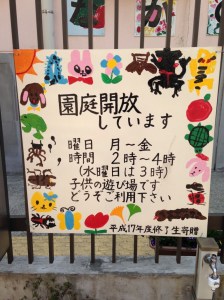 園庭開放
しています
曜日 月～金
時間 2時～4時
(水曜日は3時)
子供の遊び場です
どうぞご利用下さい
平成17年度修了生寄贈